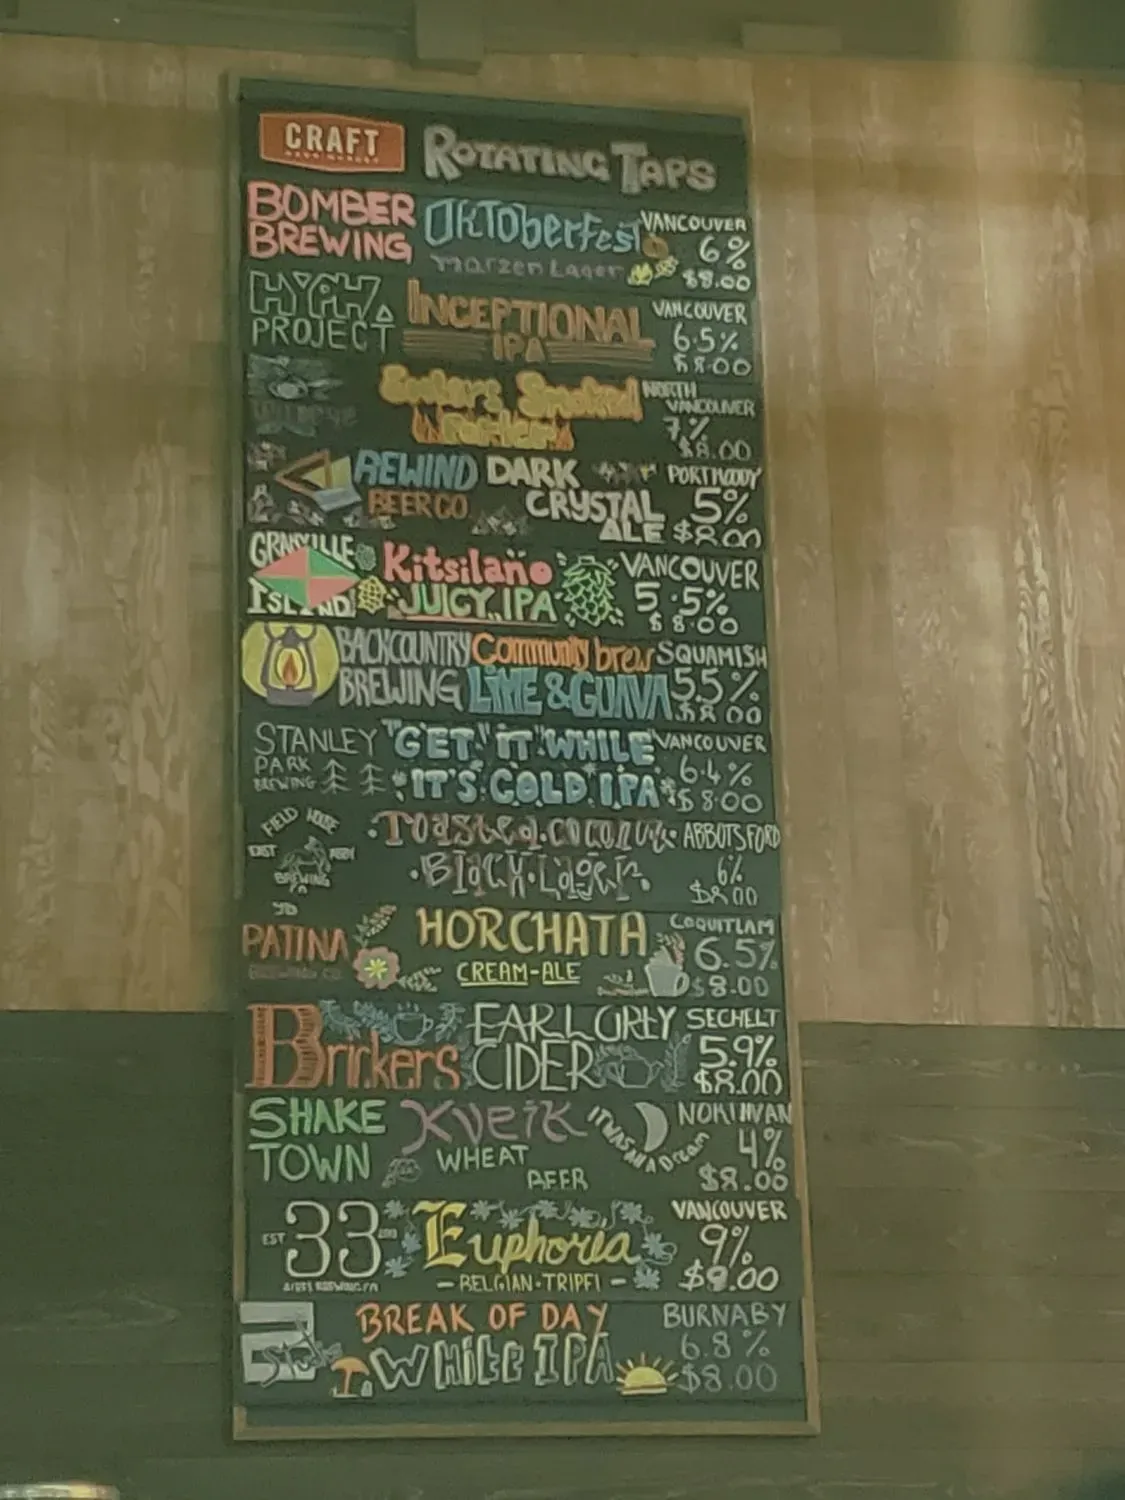 CRAFT
ROTATING TAPS
BOMBER BREWING
OKTOberfest
Marzen Lager
VANCOUVER
6%
$8.00
PROJECT
INCEPTIONAL
IPA
VANCOUVER
6.5%
$8.00
Smoked
Porter
NORTH
VANCOUVER
7%
$8.00
REWIND
BEER CO
DARK
CRYSTAL
ALE
PORT MOODY
5%
$8.00
GRANVILLE
ISLAND
Kitsilano
JUICY IPA
VANCOUVER
5.5%
$8.00
BACKCOUNTRY
BREWING
Community brew
LIME & GUAVA
SQUAMISH
5.5%
$8.00
STANLEY
PARK
BREWING
"GET "IT" WHILE
IT'S COLD IPA
VANCOUVER
6.4%
$8.00
FIELD HOUSE
BREWING
CO
Toasted coconut
Black Lager
ABBOTSFORD
6%
$8.00
PATINA
BREWING CO.
HORCHATA
CREAM-ALE
COQUITLAM
6.5%
$8.00
Brickers
EARL GREY
CIDER
SECHELT
5.9%
$8.00
SHAKE
TOWN
Kveik
WHEAT
BEER
IT WAS All A Dream
4%
$8.00
EST
33
ACRES BREWING CO
Euphoria
- BELGIAN-TRIPEL -
VANCOUVER
9%
$9.00
BREAK OF DAY
WHITE IPA
BURNABY
6.8%
$8.00